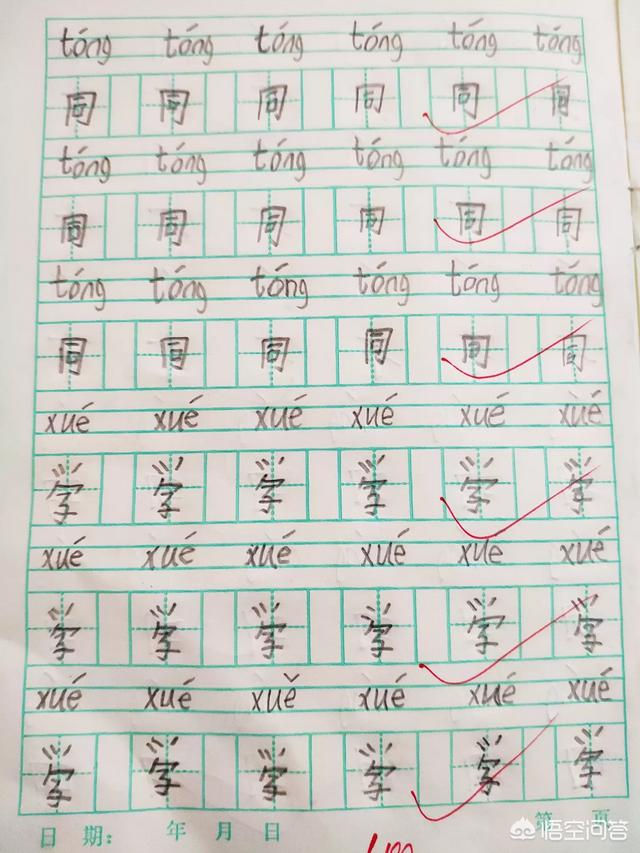 tóng tóng tóng tóng tóng tóng
同 同 同 同 同 同
tóng tóng tóng tóng tóng tóng
同 同 同 同 同 同
tóng tóng tóng tóng tóng tóng
同 同 同 同 同 同
xué xué xué xué xué xué
学 学 学 学 学 学
xué xué xué xué xue xué
学 学 学 学 学 学
xué xué xuě xué xué xué
学 学 学 学 学 学
日期: 年 月 日 第 页
悟空问答